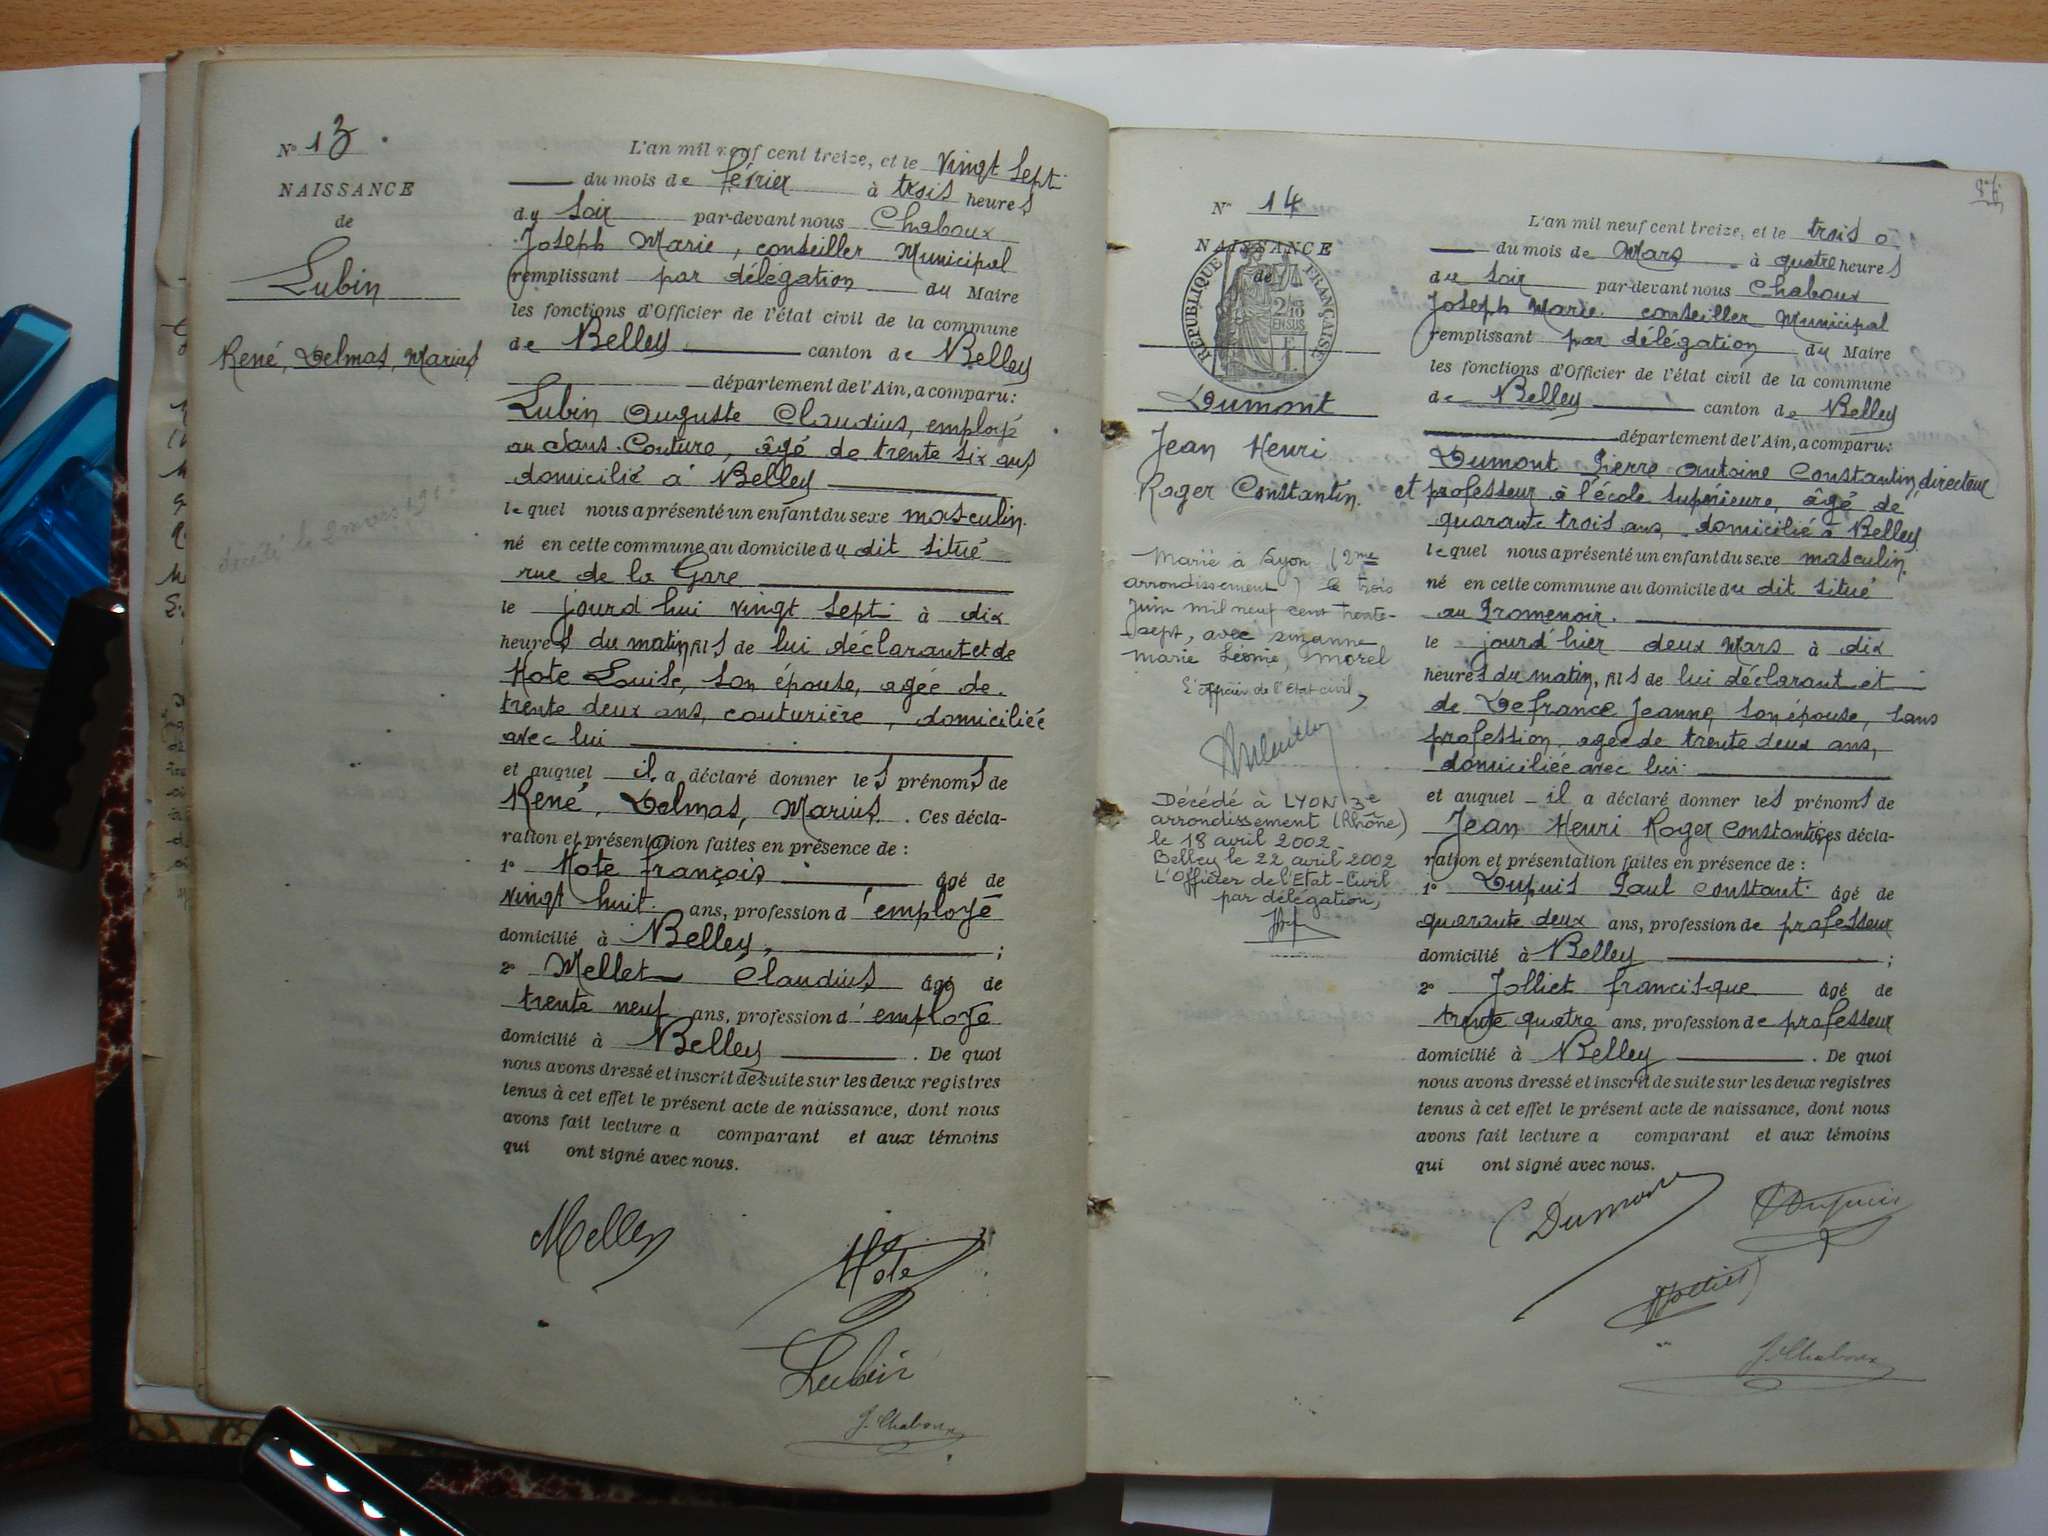 Nº 13
NAISSANCE
de
Lubin
René, Delmas, Marius
décédé le 2 mars 1913
L'an mil neuf cent treize, et le vingt sept
du mois de février à trois heures
du soir par-devant nous Chaboux
Joseph Marie, conseiller Municipal
remplissant par délégation du Maire
les fonctions d'Officier de l'état civil de la commune
de Belley canton de Belley
département de l'Ain, a comparu:
Lubin Auguste Claudius, employé
au Sans-Couture, âgé de trente six ans
domicilié à Belley
lequel nous a présenté un enfant du sexe masculin.
né en cette commune au domicile du dit situé
rue de la Gare
le jourd'hui vingt sept à dix
heures du matin, fils de lui déclarant et de
Hote Louise, son épouse, agée de
trente deux ans, couturière, domiciliée
avec lui
et auquel il a déclaré donner les prénoms de
René, Delmas, Marius. Ces décla-
ration et présentation faites en présence de :
1º Hote françois âgé de
vingt huit ans, profession d'employé
domicilié à Belley, ;
2º Mellet Claudius âgé de
trente neuf ans, profession d'employé
domicilié à Belley . De quoi
nous avons dressé et inscrit de suite sur les deux registres
tenus à cet effet le présent acte de naissance, dont nous
avons fait lecture a comparant et aux témoins
qui ont signé avec nous.
Mellet
Hote
Lubin
J. Chaboux
Nº 14
NAISSANCE
de
RÉPUBLIQUE FRANÇAISE
2/10 EN SUS
Dumont
Jean Henri
Roger Constantin.
Marié à Lyon (2me
arrondissement) le trois
Juin mil neuf cent trente-
sept, avec Suzanne
Marie Léonie Morel
L'officier de l'Etat civil,
Décédé à LYON 3e
arrondissement (Rhône)
le 18 avril 2002
Belley le 22 avril 2002
L'Officier de l'Etat-Civil
par délégation,
L'an mil neuf cent treize, et le trois
du mois de Mars à quatre heures
du soir par-devant nous Chaboux
Joseph Marie conseiller Municipal
remplissant par délégation du Maire
les fonctions d'Officier de l'état civil de la commune
de Belley canton de Belley
département de l'Ain, a comparu:
Dumont Pierre Antoine Constantin, directeur
et professeur à l'école supérieure, âgé de
quarante trois ans, domicilié à Belley
lequel nous a présenté un enfant du sexe masculin.
né en cette commune au domicile du dit situé
au Promenoir.
le jourd'hier deux Mars à dix
heures du matin, fils de lui déclarant et
de Defrance Jeanne, son épouse, sans
profession, agée de trente deux ans,
domiciliée avec lui
et auquel il a déclaré donner les prénoms de
Jean Henri Roger Constantin. Ces décla-
ration et présentation faites en présence de :
1º Dupuis Paul Constant âgé de
quarante deux ans, profession de professeur
domicilié à Belley ;
2º Jolliet francisque âgé de
trente quatre ans, profession de professeur
domicilié à Belley . De quoi
nous avons dressé et inscrit de suite sur les deux registres
tenus à cet effet le présent acte de naissance, dont nous
avons fait lecture a comparant et aux témoins
qui ont signé avec nous.
Dumont
Dupuis
Jolliet
J. Chaboux